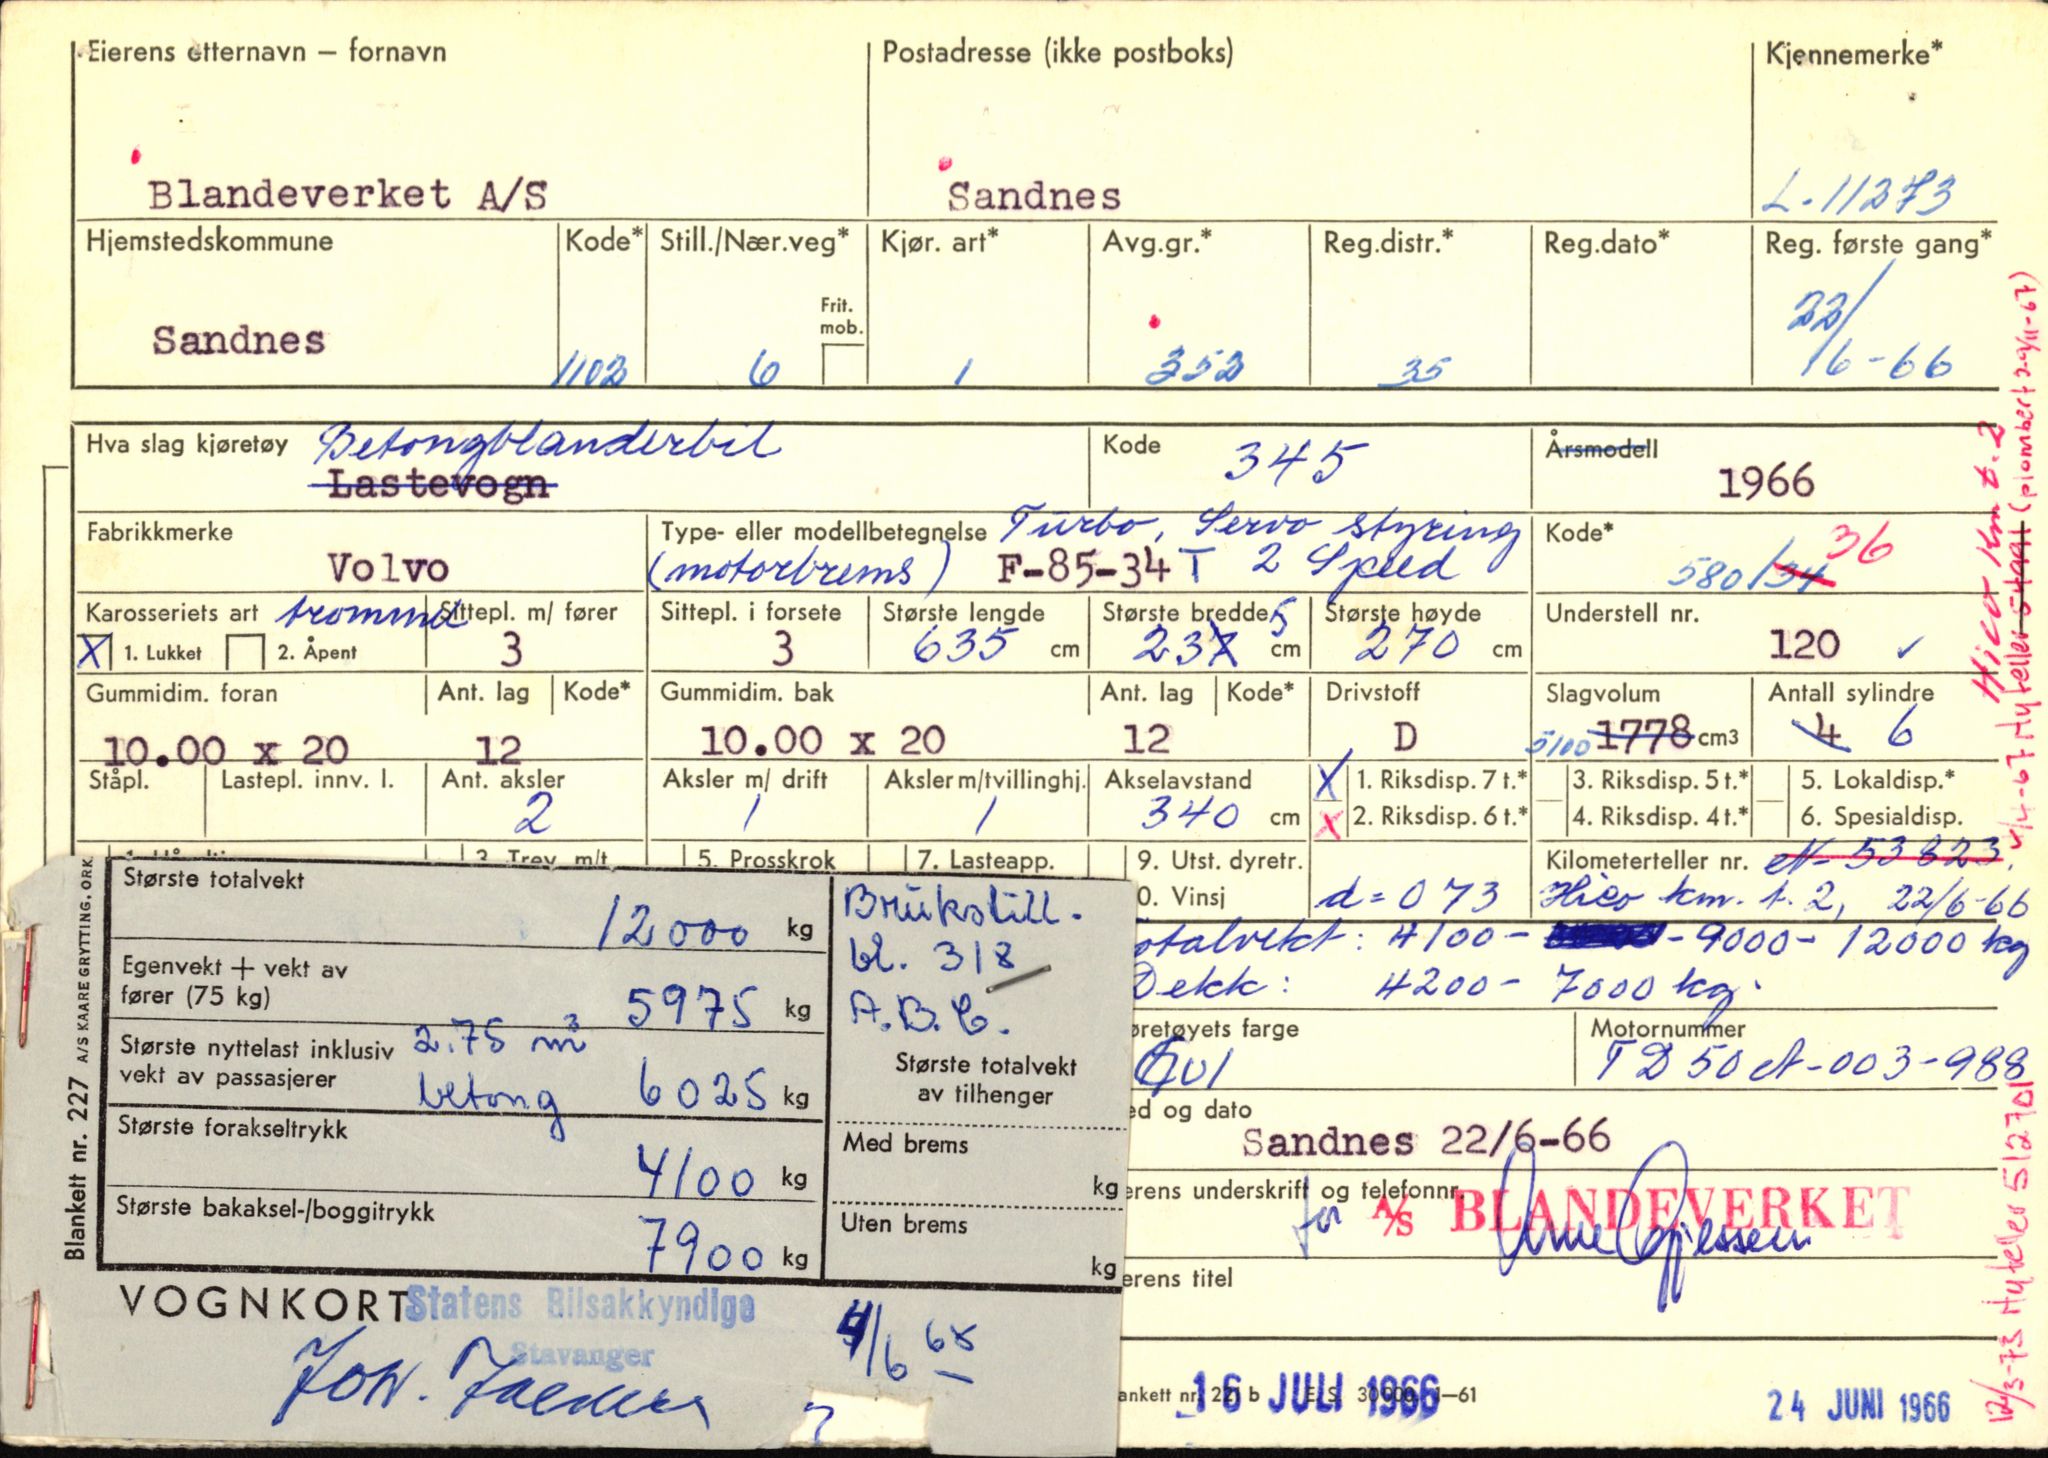 Eierens etternavn – fornavn Postadresse (ikke postboks) Kjennemerke*
Blandeverket A/S Sandnes L-11273
Hjemstedskommune Kode* Still./Nær.veg* Kjør. art* Avg.gr.* Reg.distr.* Reg.dato* Reg. første gang*
Frit. mob.
Sandnes 1102 6 1 352 35 22/6-66
Hva slag kjøretøy Betongblanderbil Kode 345 Årsmodell
Lastevogn 1966
Fabrikkmerke Type- eller modellbetegnelse Turbo, Servo styring Kode* 36
Volvo (motorbrems) F-85-34 T 2 Speed 580/34
Karosseriets art trommel Sittepl. m/ fører Sittepl. i forsete Største lengde Største bredde Største høyde Understell nr.
X 1. Lukket 2. Åpent 3 3 635 cm 237 5 cm 270 cm 120 ✓
Gummidim. foran Ant. lag Kode* Gummidim. bak Ant. lag Kode* Drivstoff Slagvolum Antall sylindre
10.00 x 20 12 10.00 x 20 12 D 5100 1778 cm3 4 6
Ståpl. Lastepl. innv. l. Ant. aksler Aksler m/ drift Aksler m/tvillinghj. Akselavstand X 1. Riksdisp. 7 t.* 3. Riksdisp. 5 t.* 5. Lokaldisp.*
2 1 1 340 cm X 2. Riksdisp. 6 t.* 4. Riksdisp. 4 t.* 6. Spesialdisp.
5. Prosskrok 7. Lasteapp. 9. Utst. dyretr. Kilometerteller nr. A-53823
0. Vinsj d = 073 Hico km. t. 2, 22/6-66
otalvekt: 4100 - - 9000 - 12000 kg
Dekk: 4200 - 7000 kg.
øretøyets farge Motornummer
Gul TD50A-003-988
ed og dato
Sandnes 22/6-66
erens underskrift og telefonnr.
for A/S BLANDEVERKET
Arne Gjessen
erens titel
ankett nr. 221 b E.S. 30000. 1–61
16 JULI 1966 24 JUNI 1966
Blankett nr. 227 A/S KAARE GRYTTING, ORK.
Største totalvekt 12000 kg
Egenvekt + vekt av
fører (75 kg) 5975 kg
Største nyttelast inklusiv 2.75 m³
vekt av passasjerer betong 6025 kg
Største forakseltrykk 4100 kg
Største bakaksel-/boggitrykk 7900 kg
Brukstill.
bl. 318
A.B.C.
Største totalvekt
av tilhenger
Med brems kg
Uten brems kg
VOGNKORT Statens Bilsakkyndige
Stavanger
4/6 68
Hico Km t. 2
4/4-67 Ny teller 51441 (plombert 29/11-67)
12/3-73 Ny teller 512701